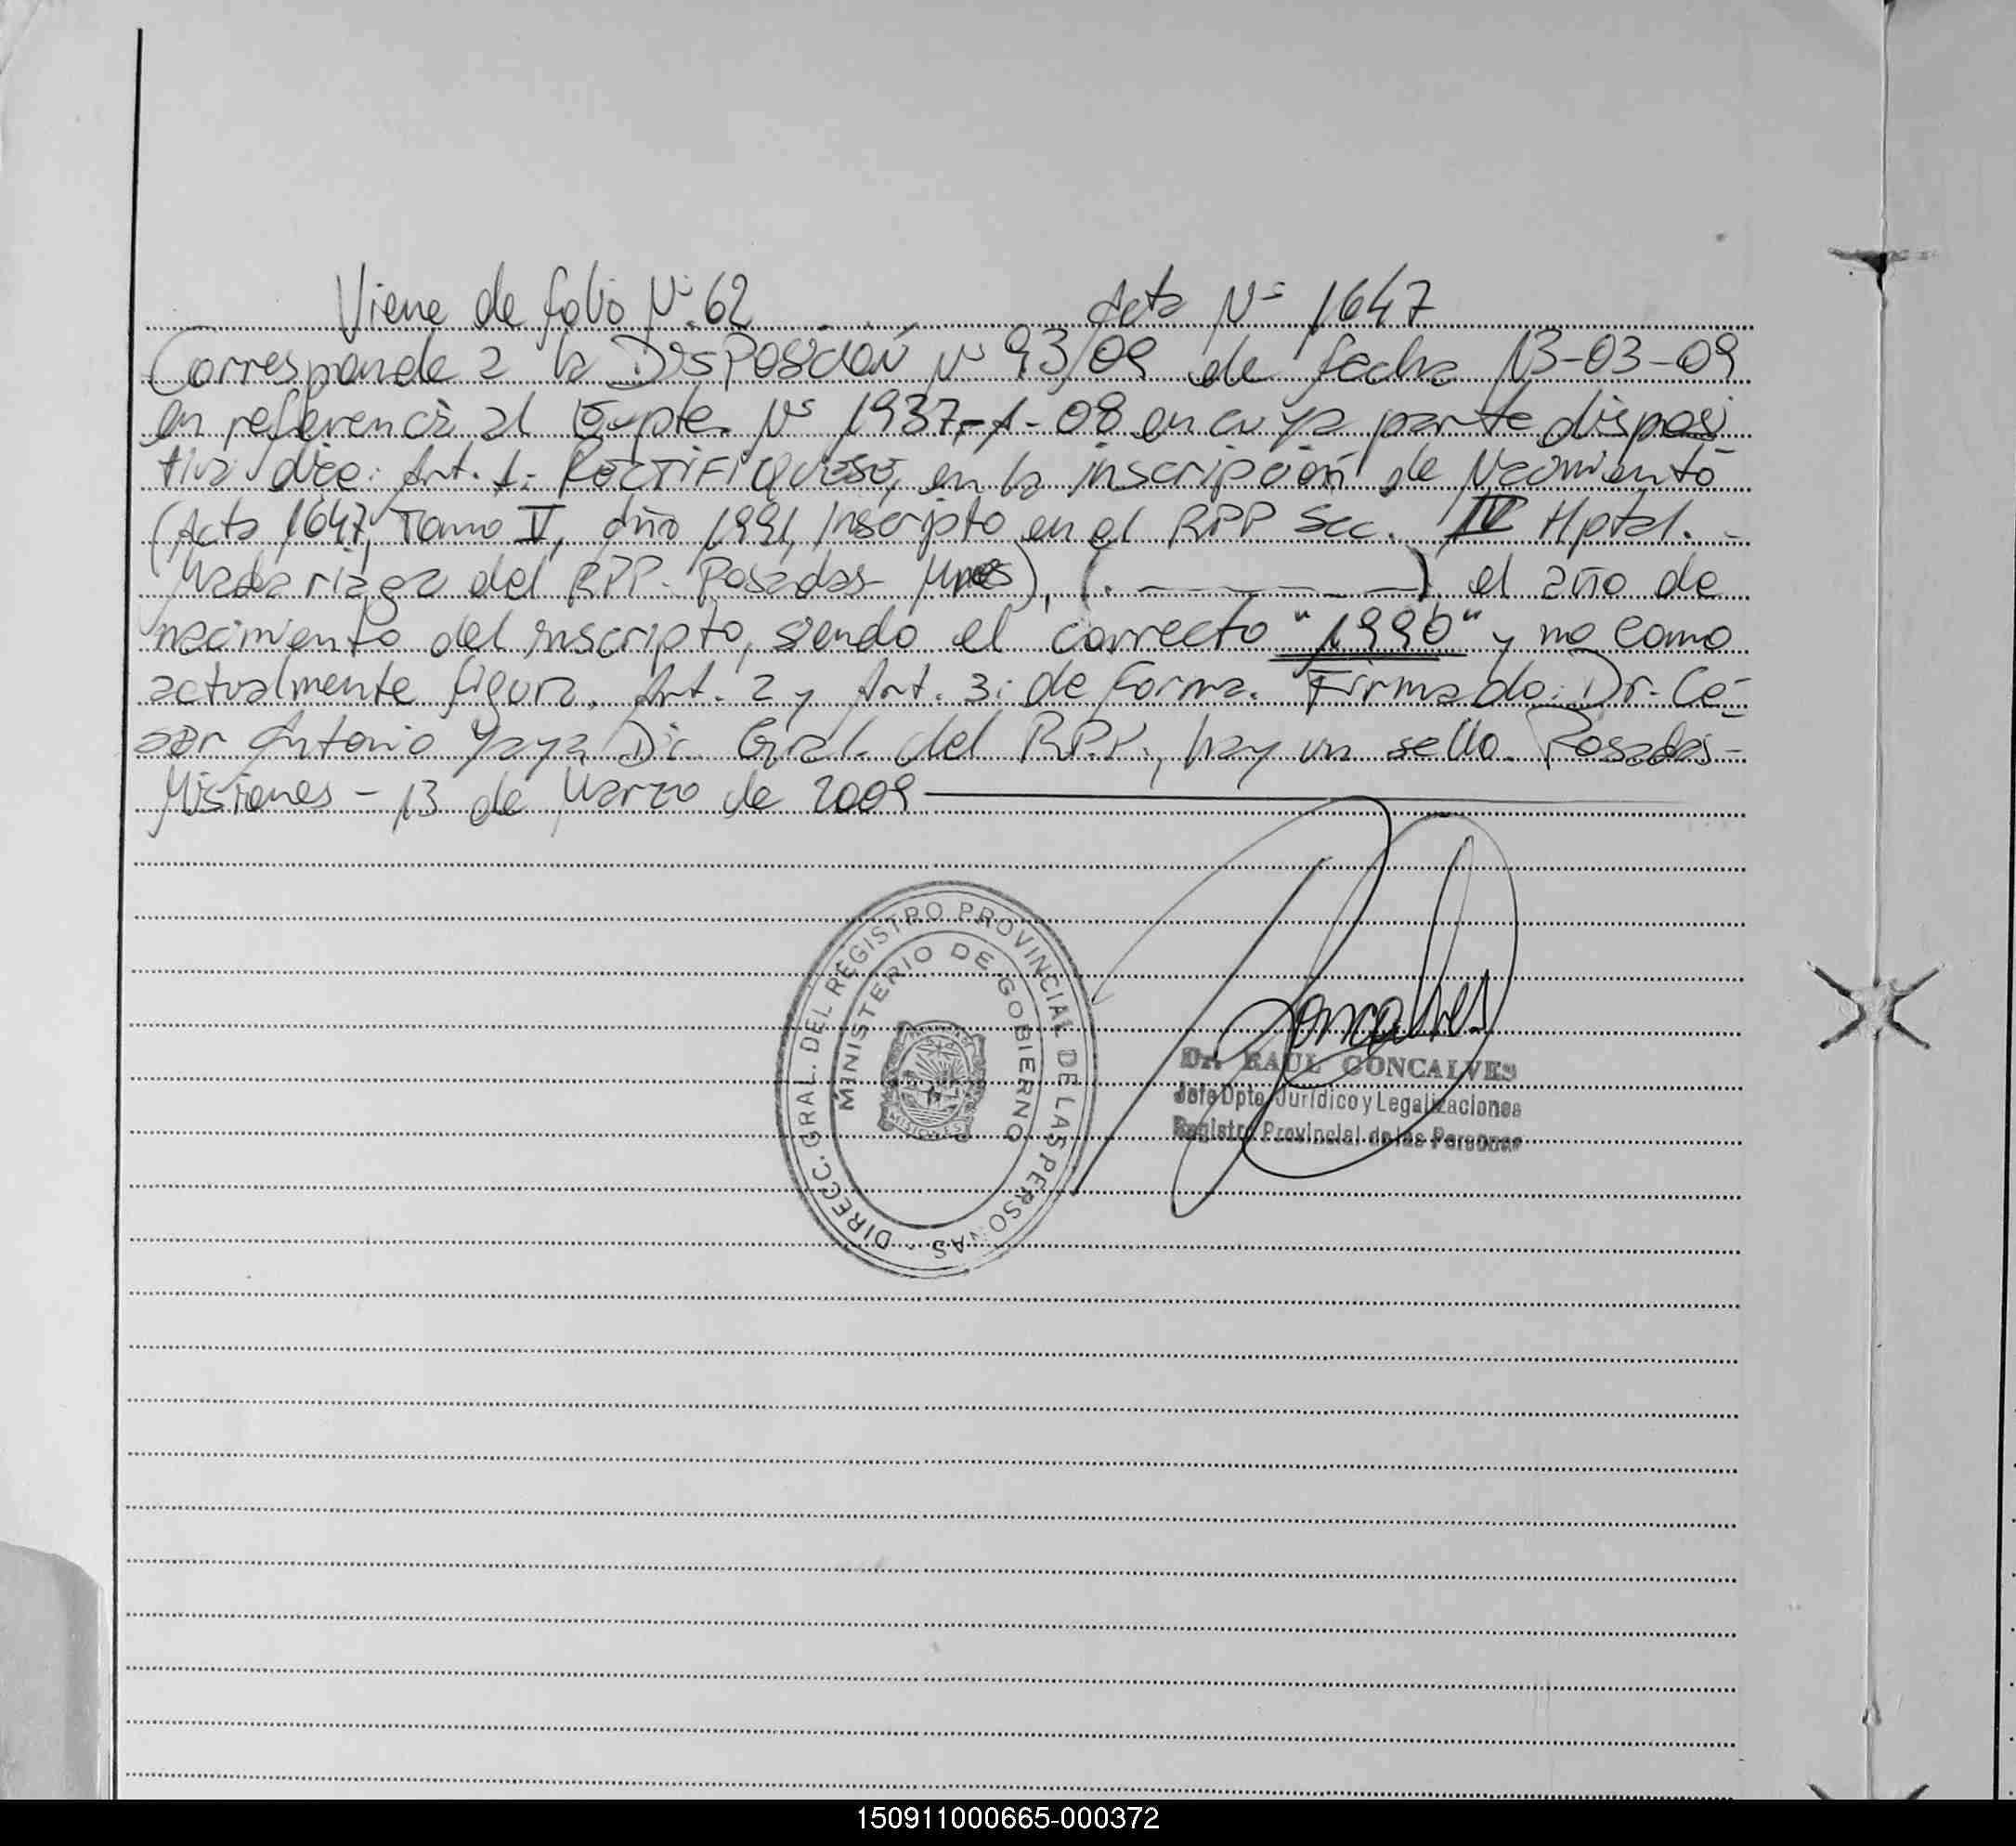 Viene de folio Nº 62 Acta Nº 1647
Corresponde a la DISPOSICIÓN Nº 93/09 de fecha 13-03-09
en referencia al Expte. Nº 1937-1-08 en cuya parte disposi
tiva dice: Art. 1: RECTIFIQUESE, en la inscripción de Nacimiento
(Acta 1647, Tomo V, Año 1991, Inscripto en el RPP Sec. IV Hptal. -
Madariaga del RPP- Posadas- Mnes), (. - - - - - -) el año de
nacimiento del inscripto, siendo el correcto "1990" y no como
actualmente figura. Art. 2 y Art. 3: de Forma. Firmado: Dr. Cé-
sar Antonio Yaya Dir. Gral. del R.P.P., hay un sello. Posadas-
Misiones - 13 de Marzo de 2009
DIRECC. GRAL. DEL REGISTRO PROVINCIAL DE LAS PERSONAS
MINISTERIO DE GOBIERNO
MISIONES
Goncalves
Dr. RAUL GONCALVES
Jefe Dpto. Jurídico y Legalizaciones
Registro Provincial de las Personas
150911000665-000372